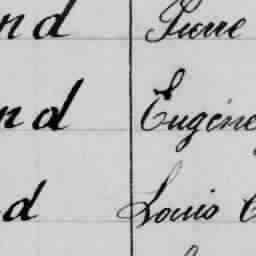 nd Pierre
nd Eugène
d Louis